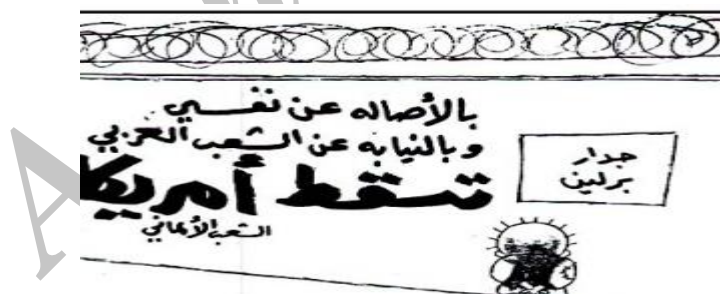 بالأصاله عن نفسي
وبالنيابه عن الشعب العربي
تسقط أمريكا
الشعب الألماني
جدار
برلين